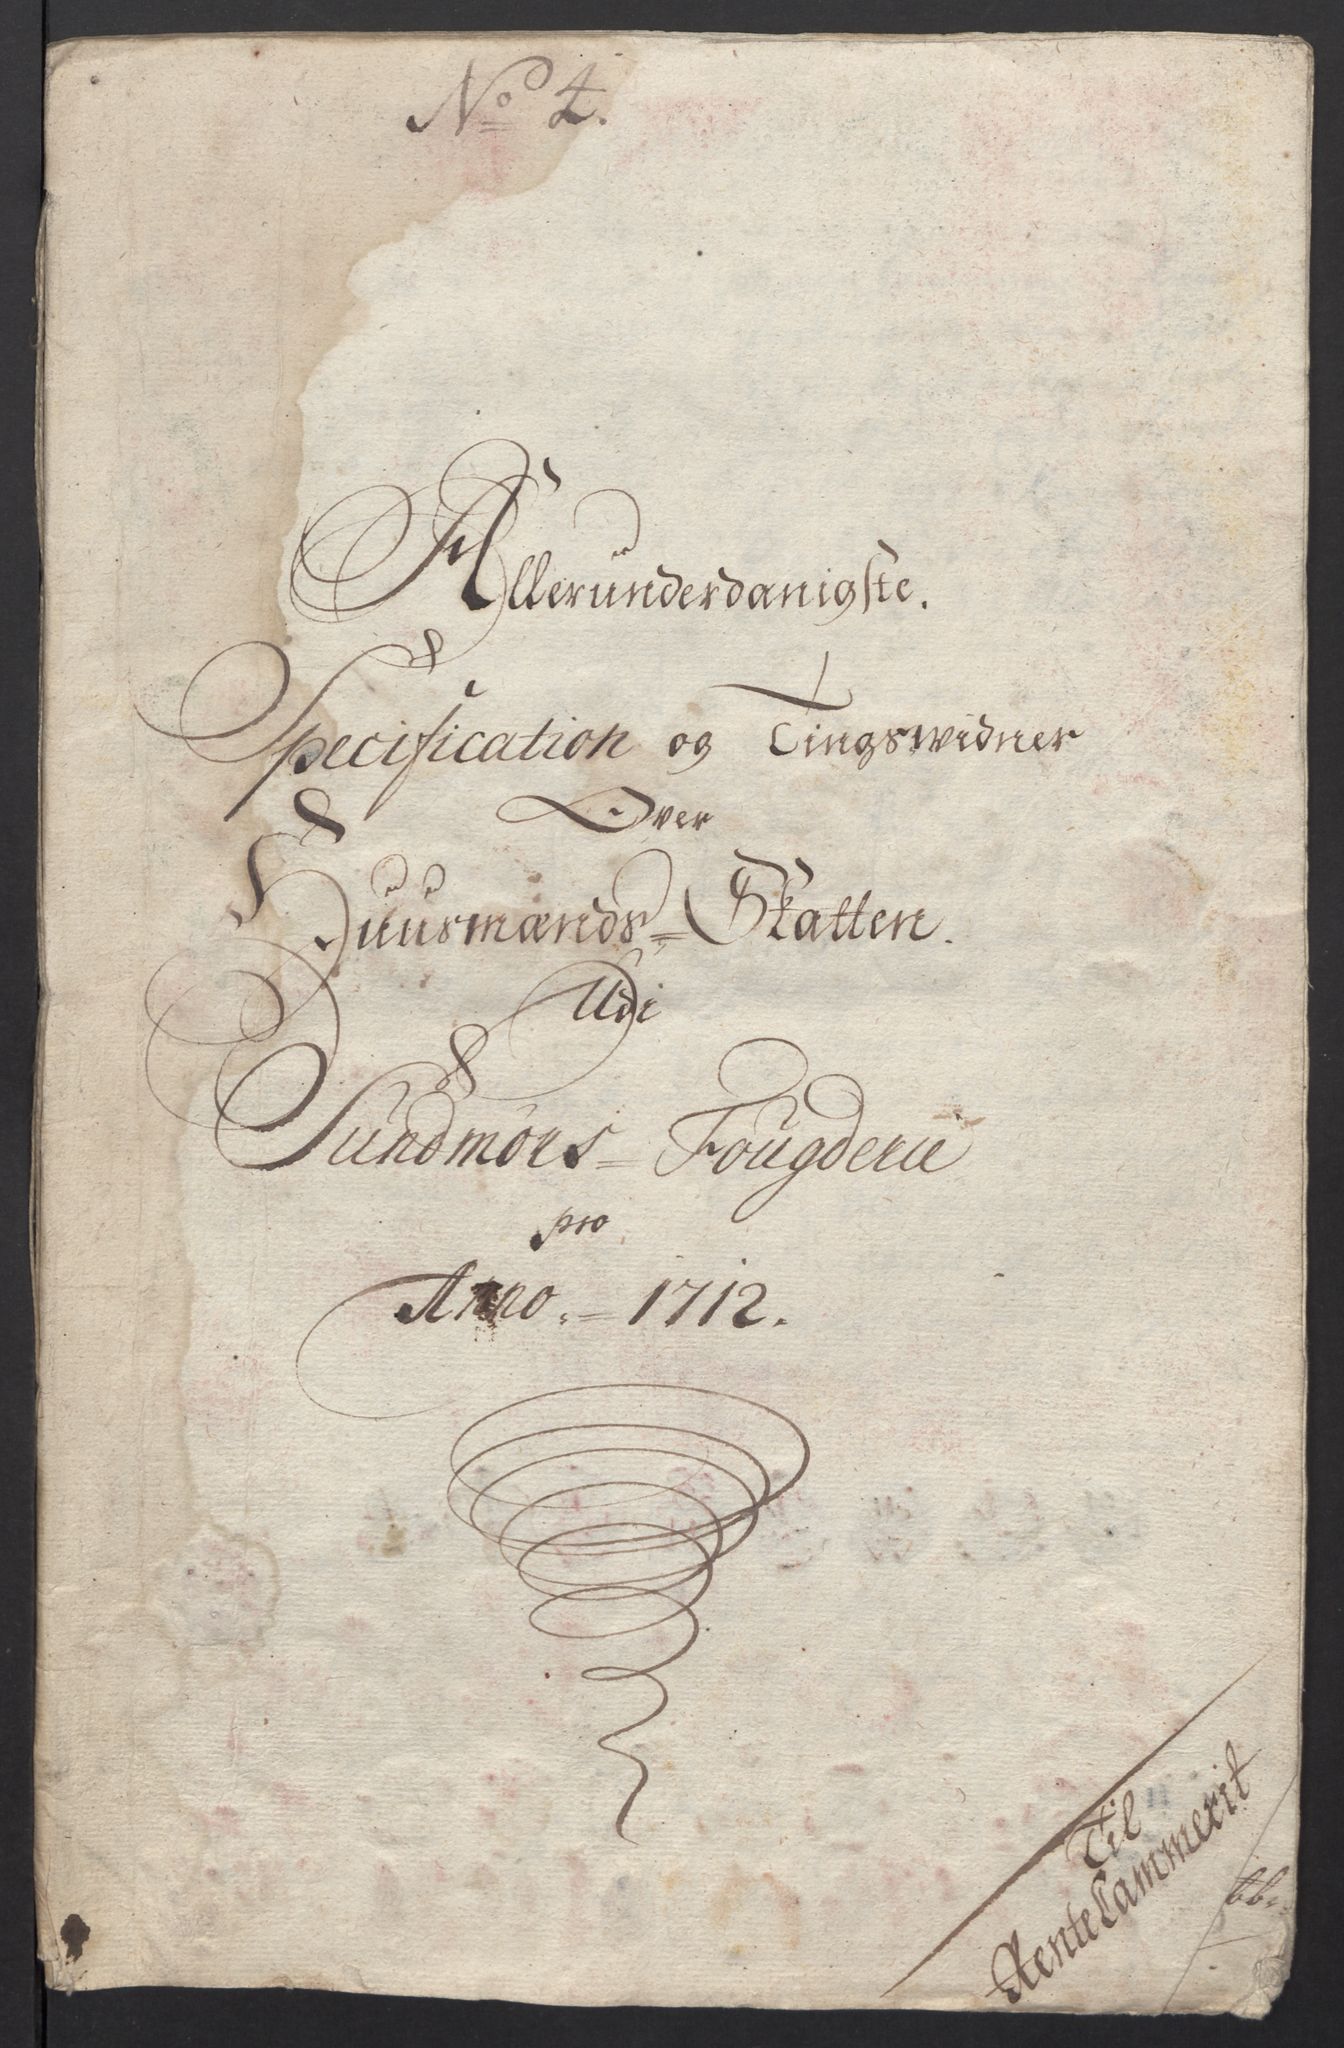 No 4.
Allerunderdanigste.
Specification og Tingswidner
Over
Huusmænds=Skatten.
Udi
Sundmörs=Fougderie
pro
Anno.=1712.
Til
RenteCammerit